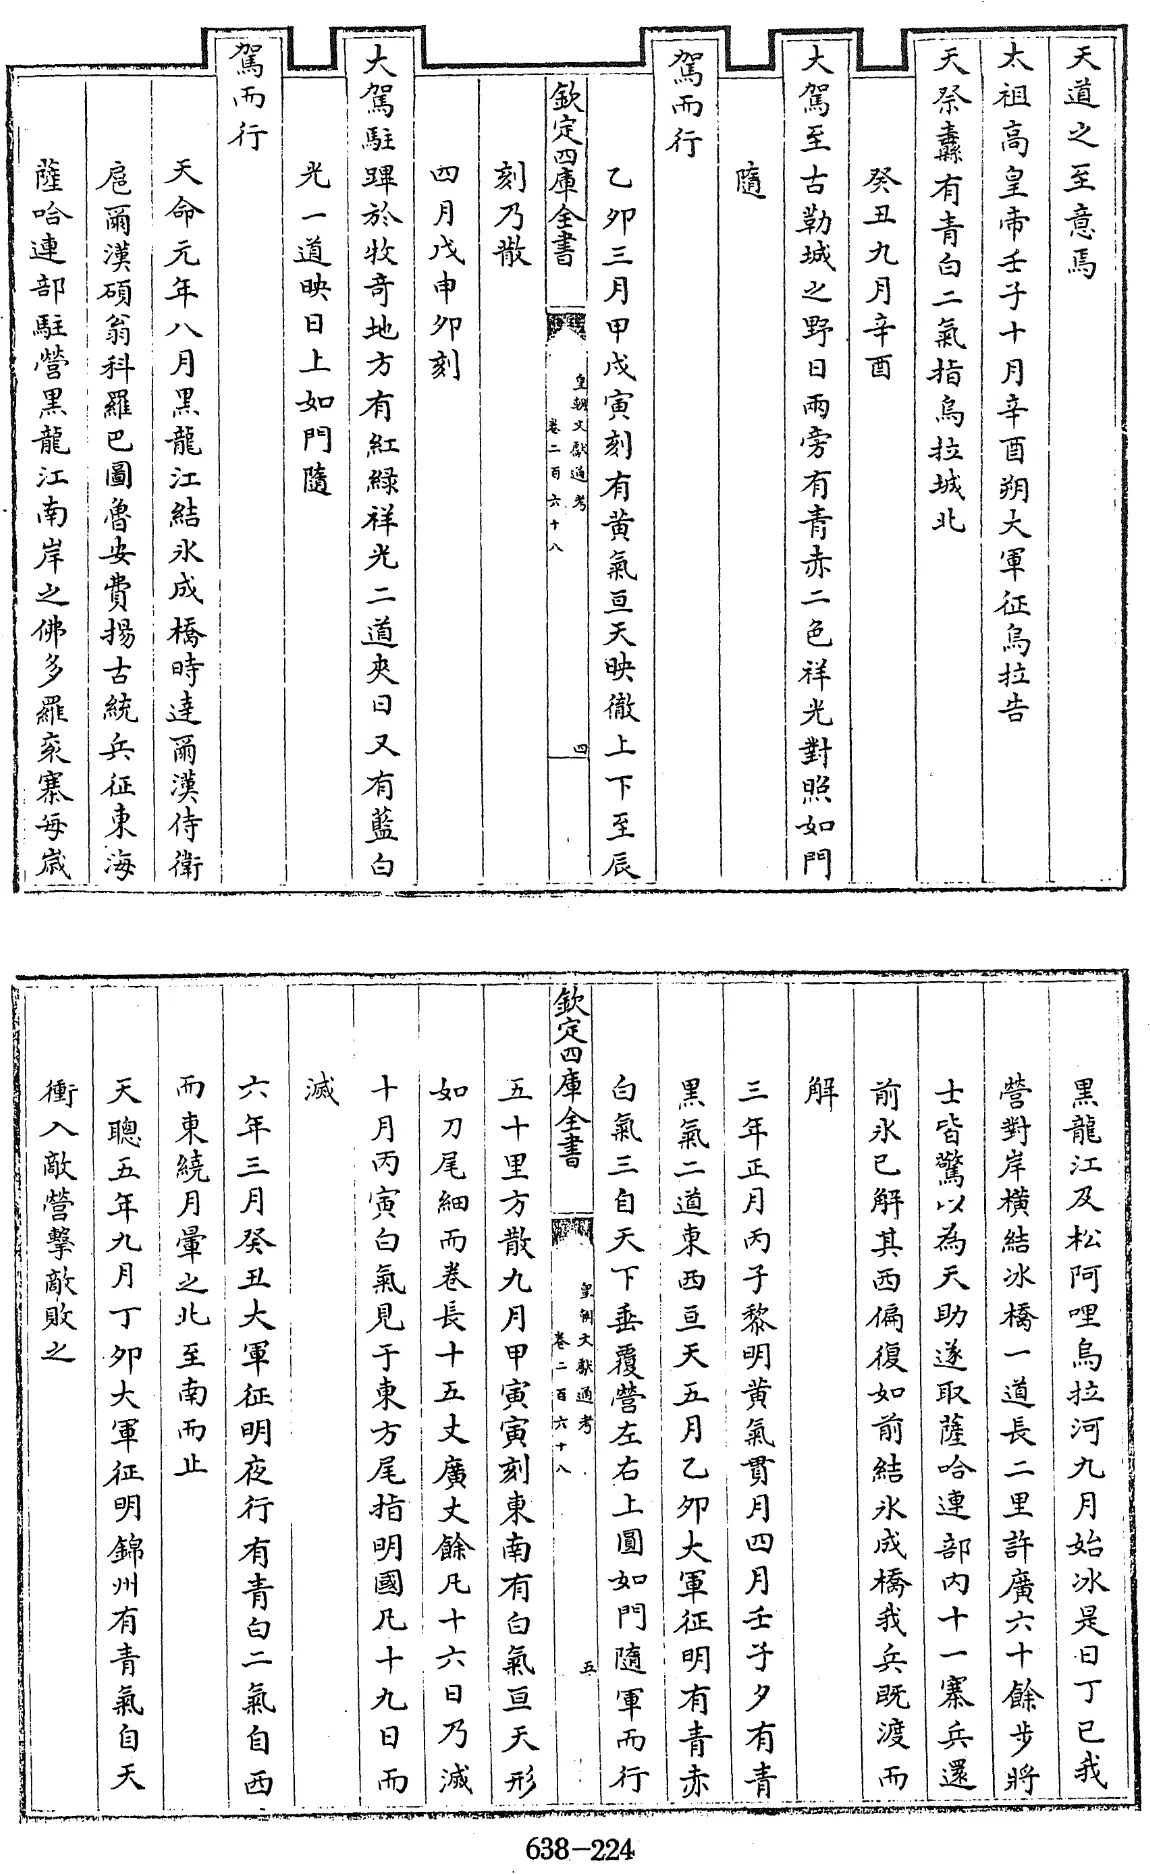 天道之至意焉
太祖高皇帝壬子十月辛酉朔大軍征烏拉告
天祭纛有青白二氣指烏拉城北
癸丑九月辛酉
大駕至古勒城之野日兩旁有青赤二色祥光對照如門
隨
駕而行
乙卯三月甲戌寅刻有黃氣亘天映徹上下至辰
欽定四庫全書
皇朝文獻通考
卷二百六十八
四
刻乃散
四月戊申卯刻
大駕駐蹕於牧奇地方有紅綠祥光二道夾日又有藍白
光一道映日上如門隨
駕而行
天命元年八月黑龍江結氷成橋時達爾漢侍衛
扈爾漢碩翁科羅巴圖魯安費揚古統兵征東海
薩哈連部駐營黑龍江南岸之佛多羅衮寨每歲
黑龍江及松阿哩烏拉河九月始冰是日丁巳我
營對岸橫結冰橋一道長二里許廣六十餘步將
士皆驚以為天助遂取薩哈連部內十一寨兵還
前氷已解其西偏復如前結氷成橋我兵既渡而
解
三年正月丙子黎明黃氣貫月四月壬子夕有青
黑氣二道東西亘天五月乙卯大軍征明有青赤
白氣三自天下垂覆營左右上圓如門隨軍而行
欽定四庫全書
皇朝文獻通考
卷二百六十八
五
五十里方散九月甲寅寅刻東南有白氣亘天形
如刀尾細而卷長十五丈廣丈餘凡十六日乃滅
十月丙寅白氣見于東方尾指明國凡十九日而
滅
六年三月癸丑大軍征明夜行有青白二氣自西
而東繞月暈之北至南而止
天聰五年九月丁卯大軍征明錦州有青氣自天
衝入敵營擊敵敗之
638-224